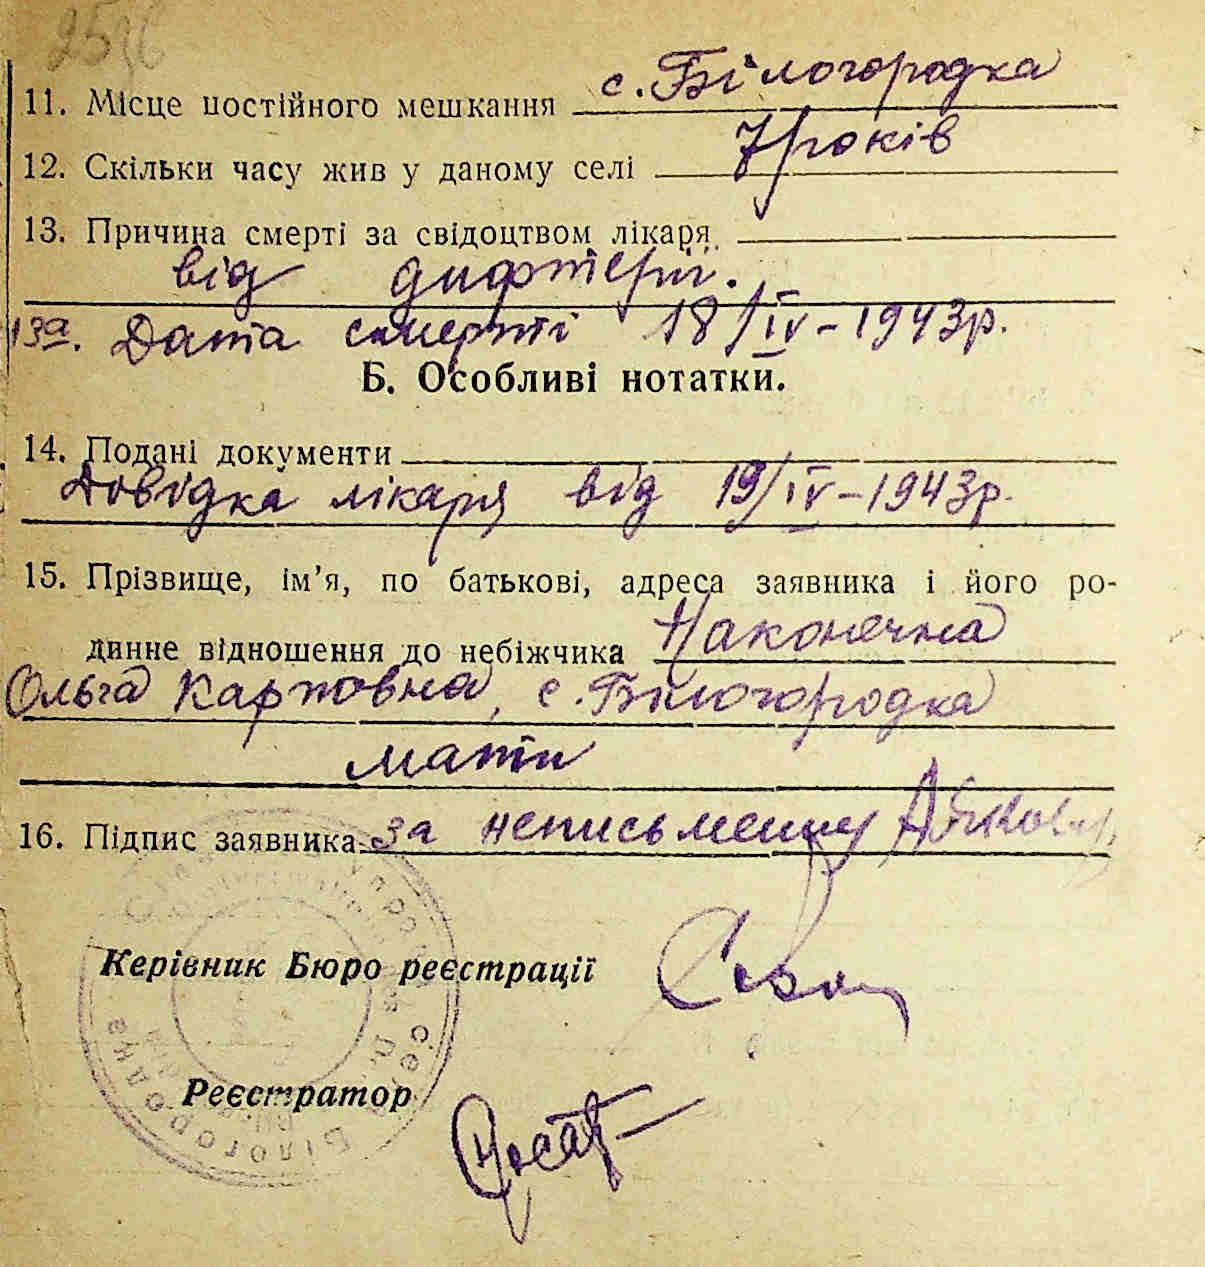 11. Місце постійного мешкання с. Білогородка
12. Скільки часу жив у даному селі 7 років
13. Причина смерті за свідоцтвом лікаря
від дифтерії.
13а. Дата смерті 18/IV – 1943р.
Б. Особливі нотатки.
14. Подані документи
Довідка лікаря від 19/IV – 1943р.
15. Прізвище, ім’я, по батькові, адреса заявника і його ро-
динне відношення до небіжчика Наконечна
Ольга Карповна, с. Білогородка
мати
16. Підпис заявника за неписьменну
Керівник Бюро реєстрації
Реєстратор